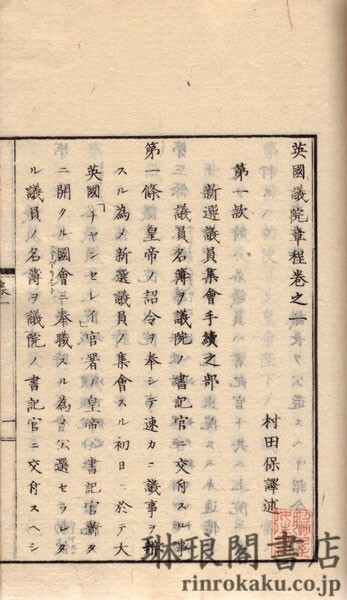 英國議院章程卷之一
村田保譯述
第一款
新選議員集會手續之部
議員名簿ヲ議院ノ書記官ニ交付スル事
第一條 皇帝ノ詔令ヲ奉シテ速カニ議事ヲ辨
スル爲メ新選議員ノ集會スル初日ニ於テ大
英國「チヤンセレイ」官署ノ皇帝ノ書記官ヨリ
ニ開クル國會ニ奉職スル爲メ公選セラレタ
ル議員ノ名簿ヲ議院ノ書記官ニ交付スヘシ
琳琅閣書店
rinrokaku.co.jp